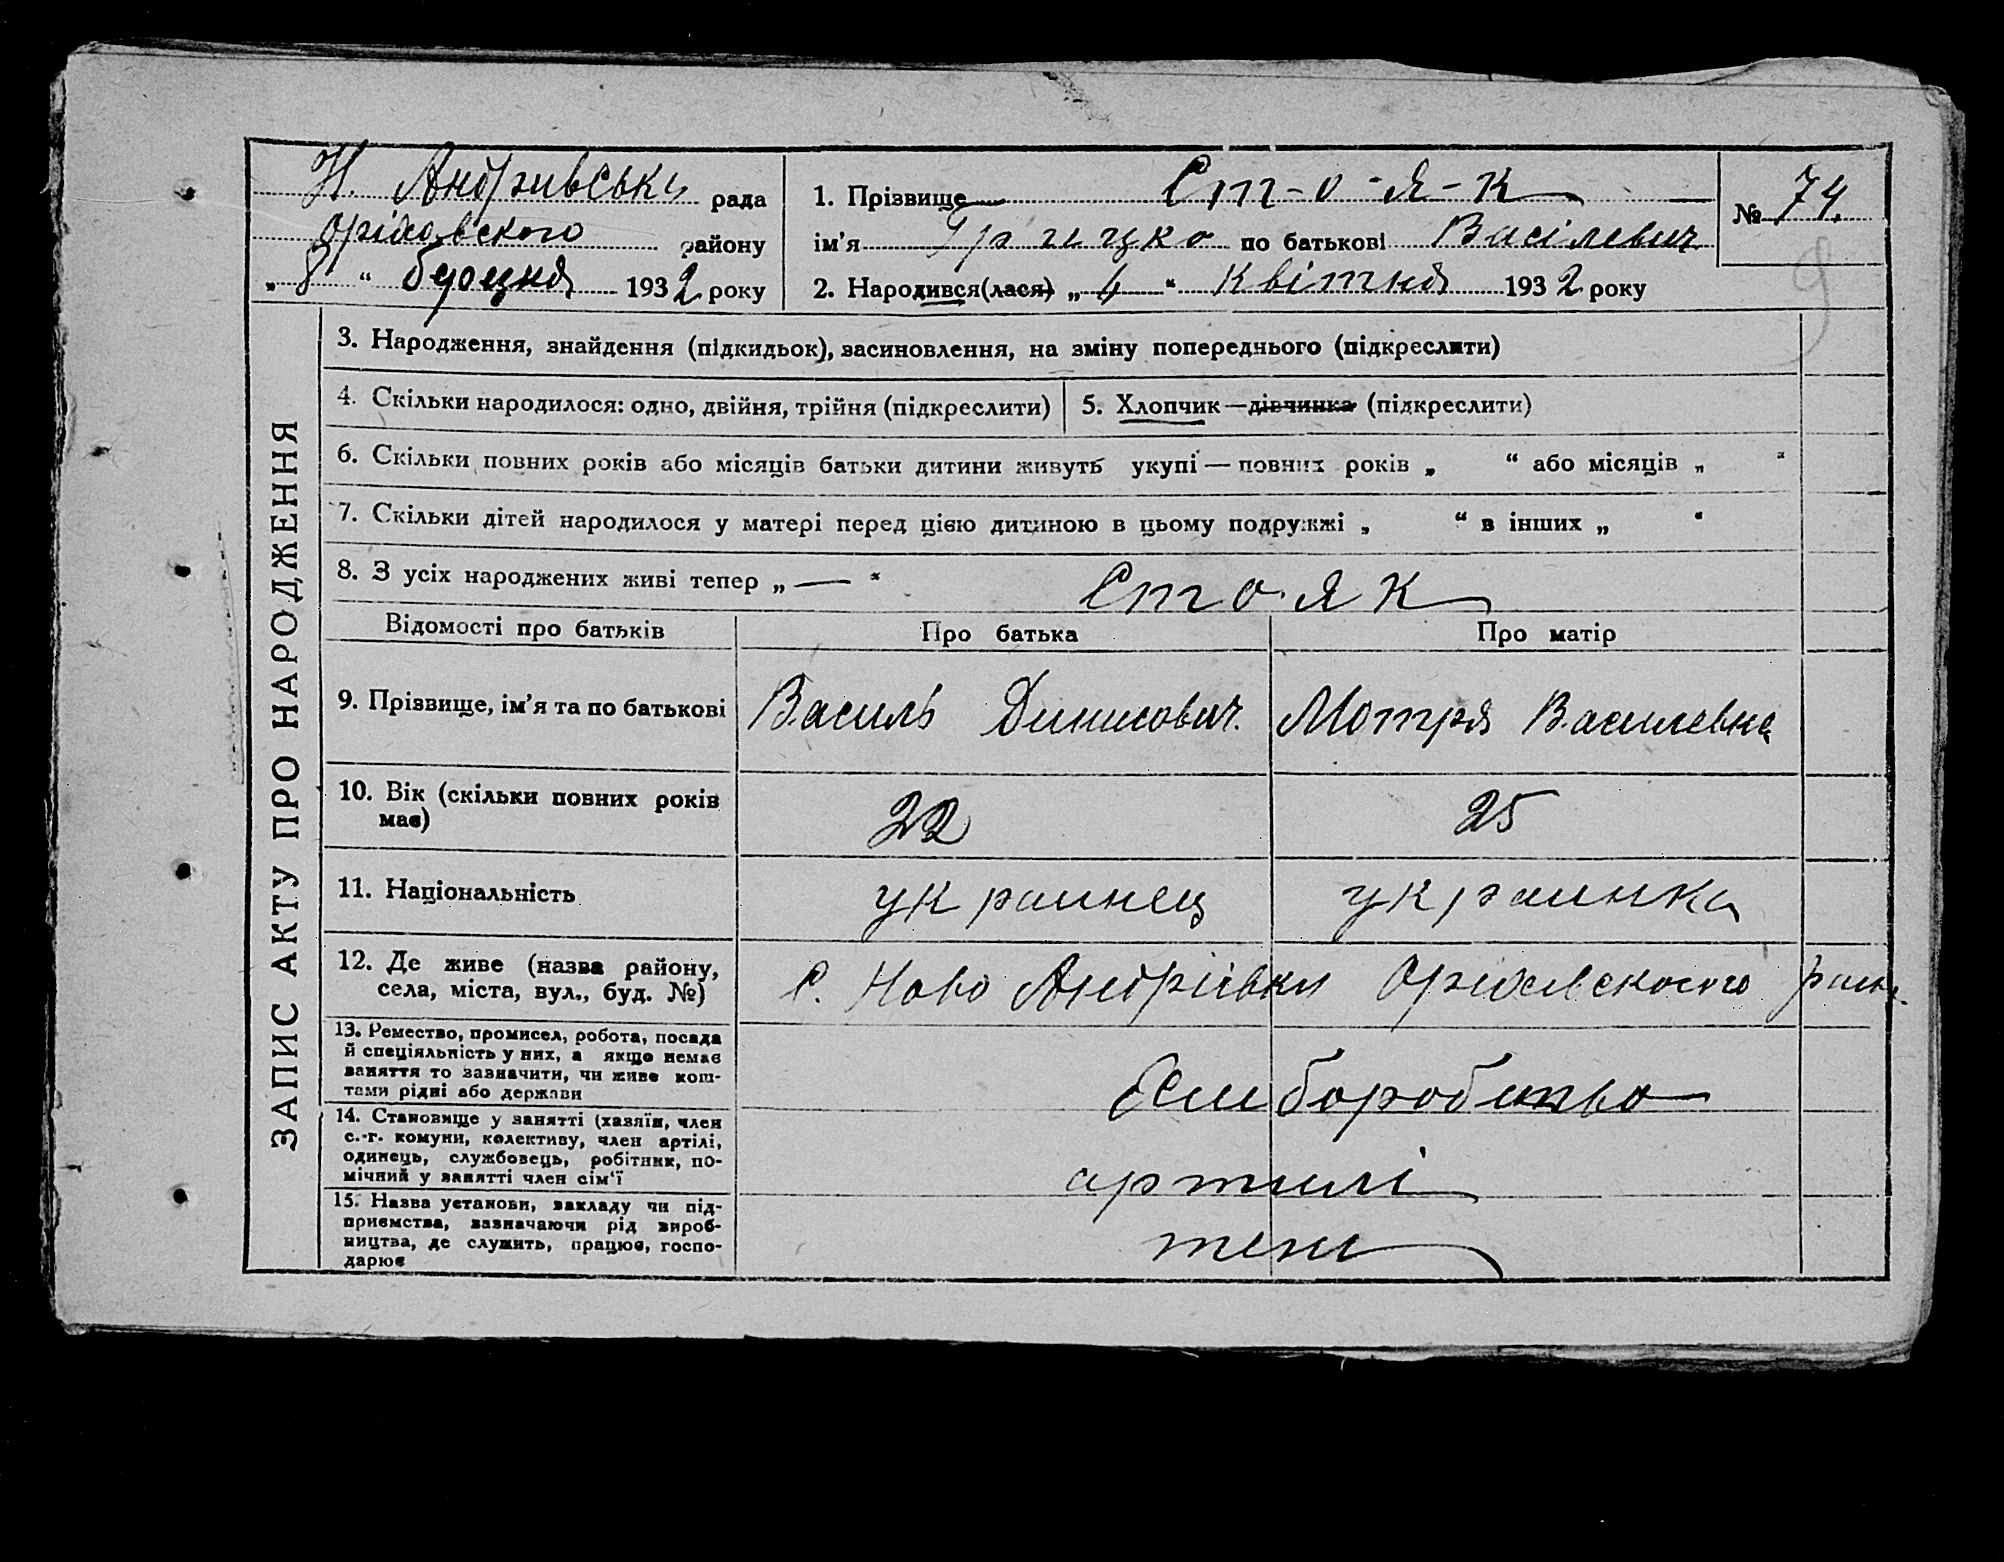 Н. Андривська рада
Оріховского району
„ 8 “ 193 2 року
1. Прізвище Ст-о-я-к
ім'я Грицко по батькові Васілевич
2. Народився(лася) „ 4 “ квітня 193 2 року
№ 74.
9
ЗАПИС АКТУ ПРО НАРОДЖЕННЯ
3. Народження, знайдення (підкидьок), засиновлення, на зміну попереднього (підкреслити)
4. Скільки народилося: одно, двійня, трійня (підкреслити)
5. Хлопчик—дівчинка (підкреслити)
6. Скільки повних років або місяців батьки дитини живуть укупі — повних років „ “ або місяців „ “
7. Скільки дітей народилося у матері перед цією дитиною в цьому подружжі „ “ в інших „ “
8. З усіх народжених живі тепер „ — “
Стояк
Відомості про батьків Про батька Про матір
9. Прізвище, ім'я та по батькові Василь Динисович. Мотря Василевна
10. Вік (скільки повних років
має)
22 25
11. Національність украинец украинка
12. Де живе (назва району,
села, міста, вул., буд. №)
с. Ново Андрівки Оріховского
13. Ремество, промисел, робота, посада
й спеціяльність у них, а якщо немає
заняття то зазначити, чи живе кош-
тами рідні або держави
14. Становище у занятті (хазяїн, член
с.-г. комуни, колективу, член артілі,
одинець, службовець, робітник, по-
мічний у занятті член сім'ї
артилі
15. Назва установи, закладу чи під-
приємства, зазначаючи рід вироб-
ництва, де служить, працює, госпо-
дарює